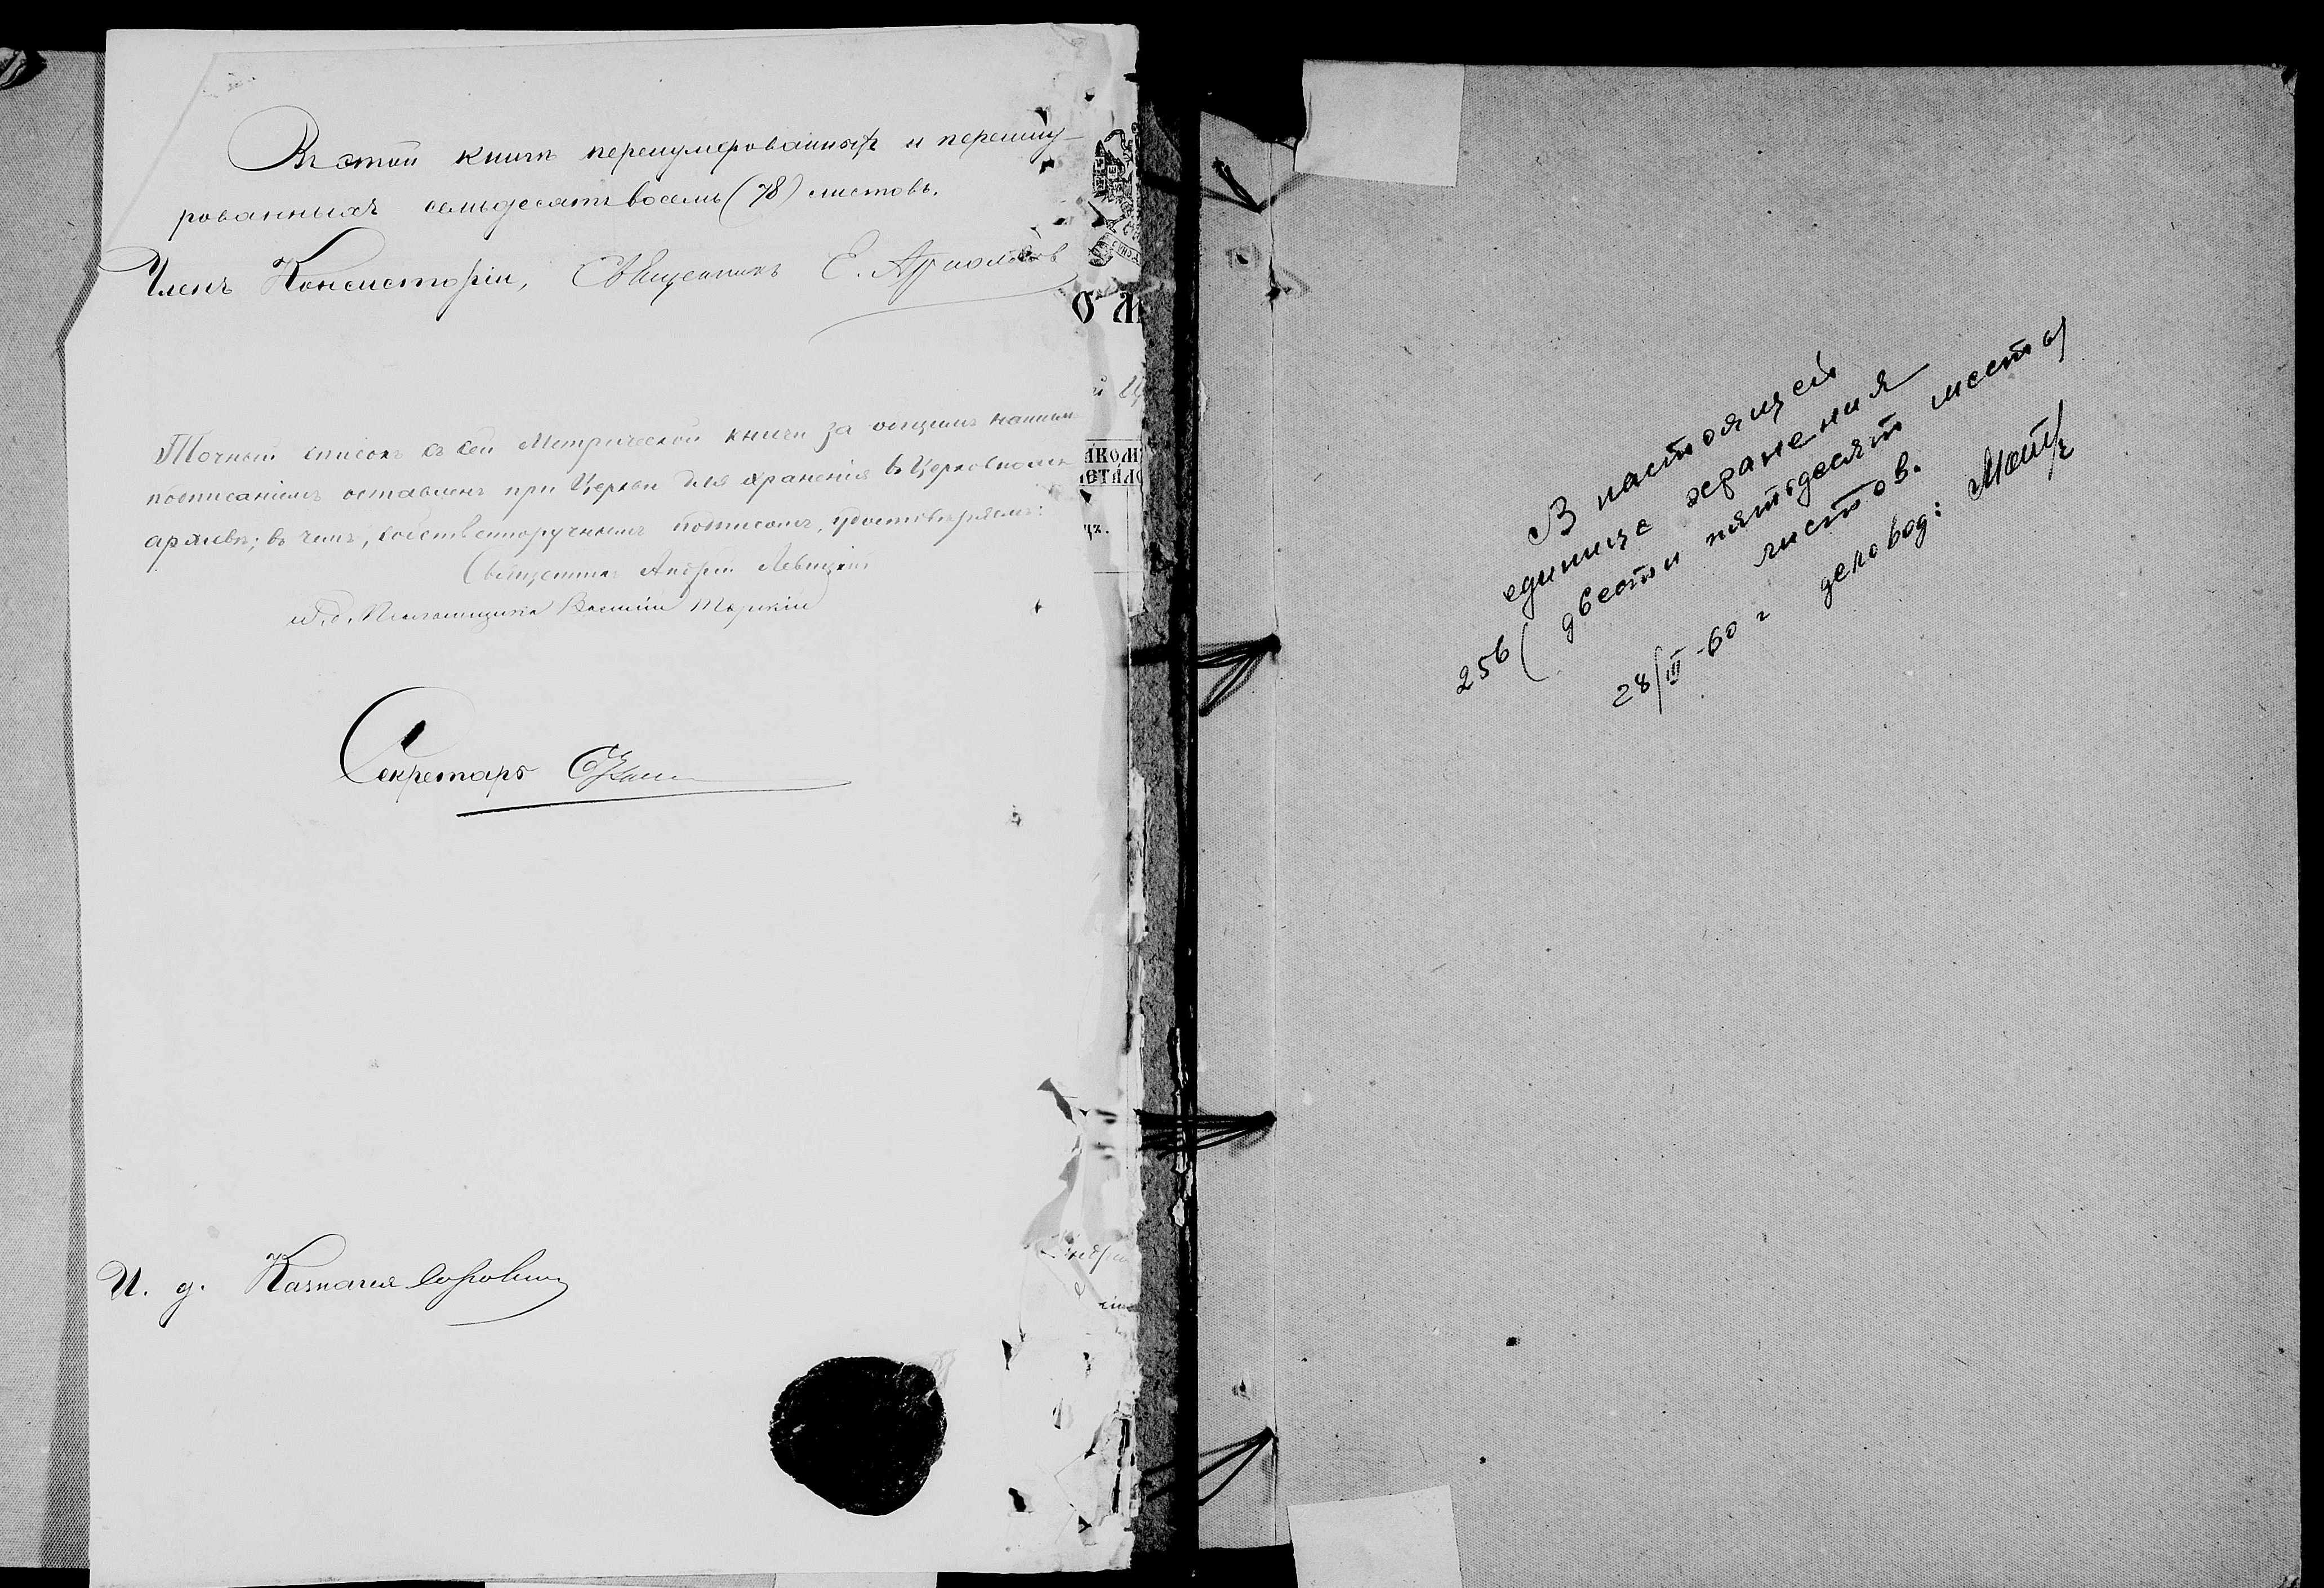 Въ этой книгѣ перенумерованныхъ и перешну-
рованныхъ семьдесятъ восемь (78) листовъ.
Членъ Консисторіи, Священникъ Е.
О М
Точный списокъ съ сей Метрической книги за общимъ нашимъ
подписаніемъ оставленъ при Церкви для храненія въ Церковномъ
архивѣ; въ чемъ, собственноручнымъ подписомъ, удостовѣряемъ:
Священникъ Андрей Левицкій
И. д. Псаломщика Василій
Секретарь
И. д. Казначея
В настоящей
единице хранения
256 (двести пятьдесят шесть)
листов.
28/III-60 г деловод: